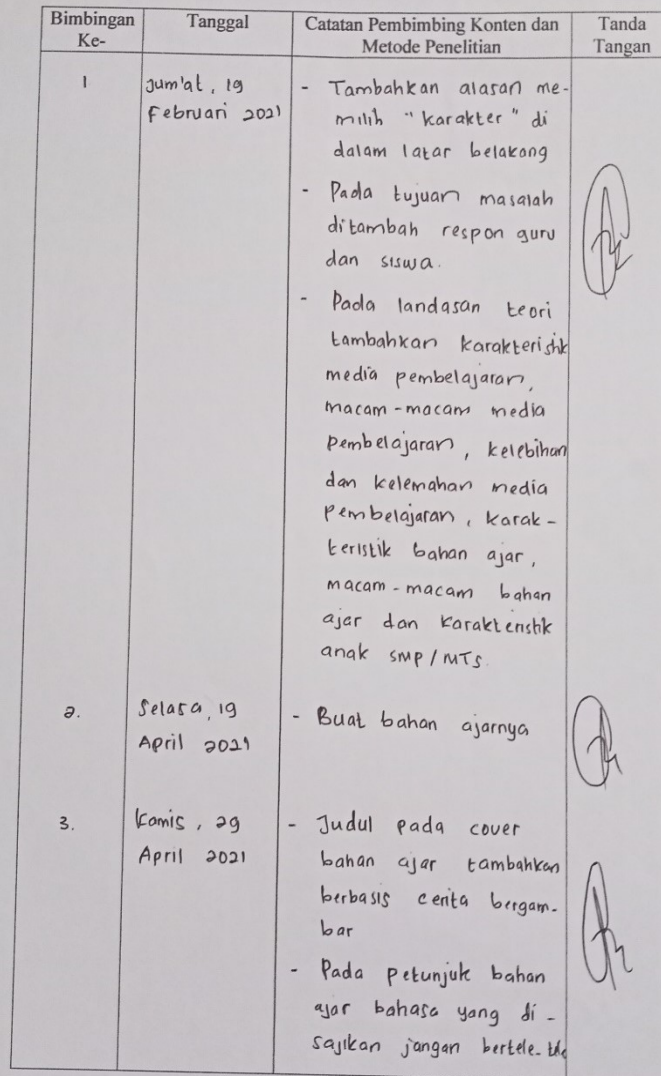 Bimbingan Ke-
Tanggal
Catatan Pembimbing Konten dan Metode Penelitian
Tanda Tangan
1
Jum'at, 19
Februari 2021
- Tambahkan alasan me-
milih "karakter" di
dalam latar belakang
- Pada tujuan masalah
ditambah respon guru
dan siswa.
- Pada landasan teori
tambahkan karakteristik
media pembelajaran,
macam-macam media
pembelajaran, kelebihan
dan kelemahan media
pembelajaran, karak-
teristik bahan ajar,
macam-macam bahan
ajar dan karakteristik
anak SMP/MTS.
2.
Selasa, 19
April 2021
- Buat bahan ajarnya
3.
Kamis, 29
April 2021
- Judul pada cover
bahan ajar tambahkan
berbasis cerita bergam-
bar
- Pada petunjuk bahan
ajar bahasa yang di-
sajikan jangan bertele-tele